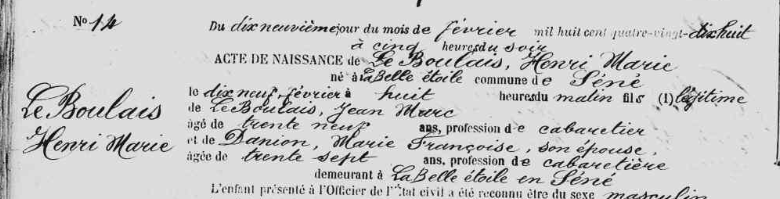 No 14
Du dix neuvième jour du mois de février mil huit cent quatre-vingt-dix huit
à cinq heures du soir
ACTE DE NAISSANCE de Le Boulais, Henri Marie
né à La Belle étoile commune de Séné
le dix neuf février à huit heures du matin fils (1) légitime
Le Boulais
Henri Marie
de Le Boulais, Jean Marc
âgé de trente neuf ans, profession de cabaretier
et de Danion, Marie Françoise, son épouse,
âgée de trente sept ans, profession de cabaretière
demeurant à La Belle étoile en Séné
L'enfant présenté à l'Officier de l'État civil a été reconnu être du sexe masculin